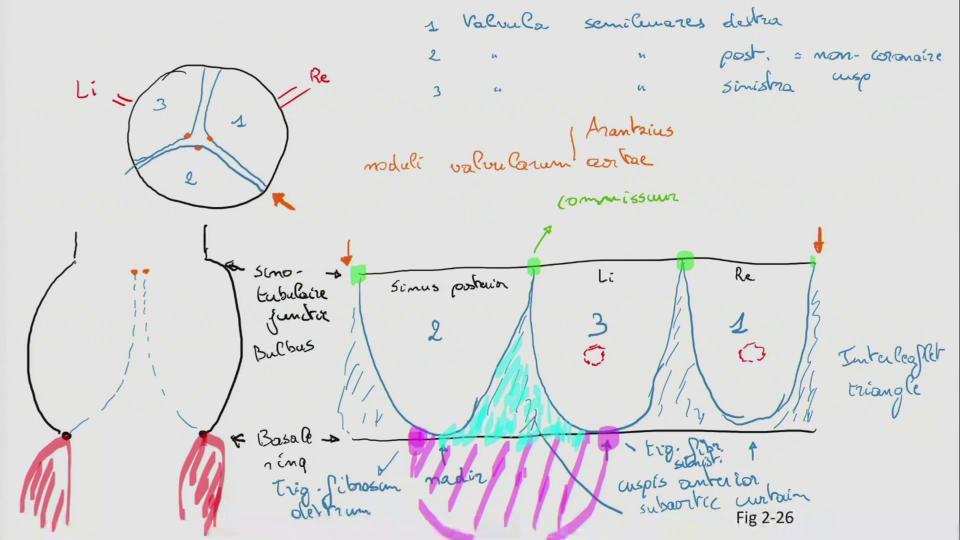 1 Valvula semilunares dextra
2 " " post. = non-coronaire cusp
3 " " sinistra
Li
Re
3
1
2
noduli valvularum Arantzius
aortae
commissuur
Sino-
tubulaire
junctie
Bulbus
Basale
ring
Sinus posterior
Li
Re
2
3
1
Interleaflet
triangle
Trig. fibrosum
dextrum
nadir
trig. fibr.
sinist.
cuspis anterior
subaortic curtain
Fig 2-26